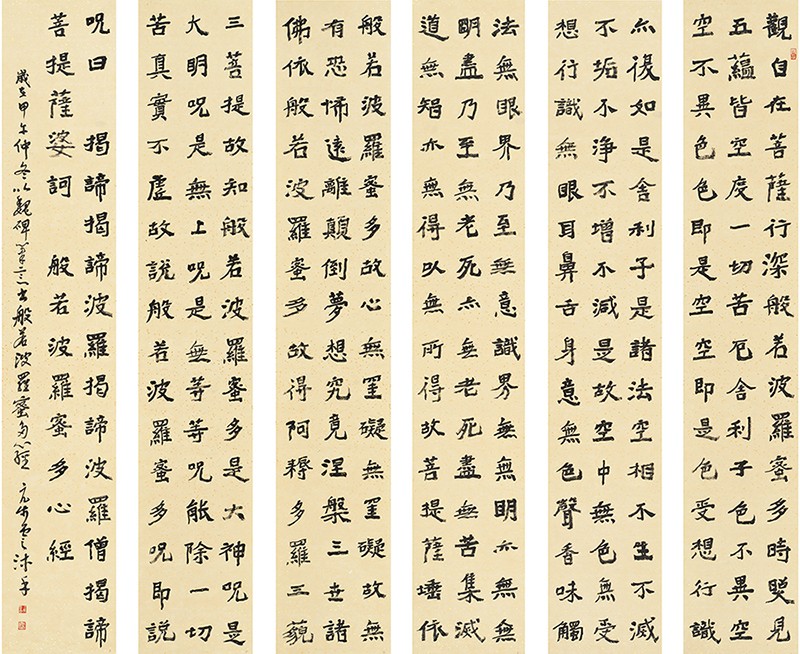 觀自在菩薩行深般若波羅蜜多時照見
五蘊皆空度一切苦厄舍利子色不異空
空不異色色即是空空即是色受想行識
亦復如是舍利子是諸法空相不生不滅
不垢不淨不增不減是故空中無色無受
想行識無眼耳鼻舌身意無色聲香味觸
法無眼界乃至無意識界無無明亦無無
明盡乃至無老死亦無老死盡無苦集滅
道無智亦無得以無所得故菩提薩埵依
般若波羅蜜多故心無罣礙無罣礙故無
有恐怖遠離顛倒夢想究竟涅槃三世諸
佛依般若波羅蜜多故得阿耨多羅三藐
三菩提故知般若波羅蜜多是大神呪是
大明呪是無上呪是無等等呪能除一切
苦真實不虛故說般若波羅蜜多呪即說
呪曰 揭諦揭諦波羅揭諦波羅僧揭諦
菩提薩婆訶 般若波羅蜜多心經
歲在甲午仲冬以魏碑筆意書般若波羅蜜多心經 沐手